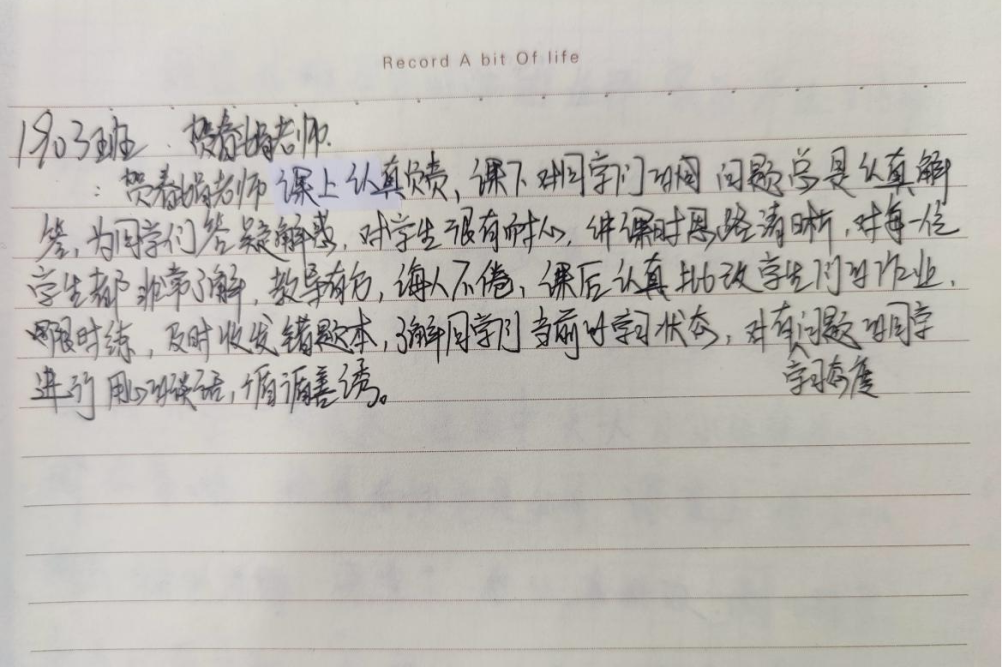 Record A bit Of life
1903班. 贺春娟老师.
: 贺春娟老师 课上认真负责, 课下对同学们的问题总是认真解
答, 为同学们答疑解惑, 对学生很有耐心, 讲课时思路清晰, 对每一位
学生都非常了解, 教导有方, 诲人不倦, 课后认真批改学生们的作业.
限时练, 及时收发错题本, 了解同学们当前的学习状态, 对有问题的同学
学习态度
进行用心的谈话, 循循善诱。